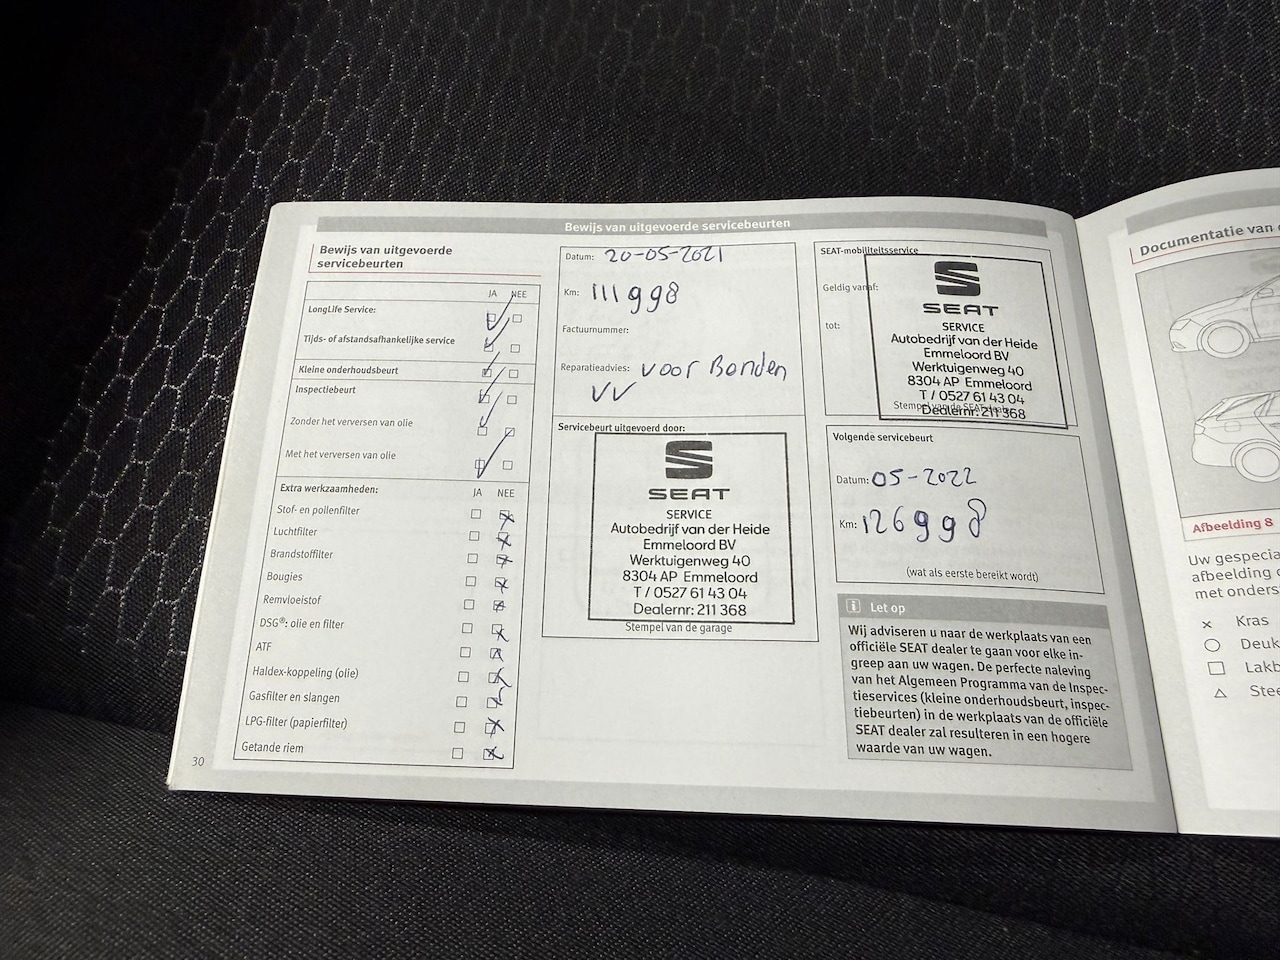 Bewijs van uitgevoerde servicebeurten
Bewijs van uitgevoerde
servicebeurten
JA NEE
LongLife Service:
Tijds- of afstandsafhankelijke service
Kleine onderhoudsbeurt
Inspectiebeurt
Zonder het verversen van olie
Met het verversen van olie
Extra werkzaamheden: JA NEE
Stof- en pollenfilter
Luchtfilter
Brandstoffilter
Bougies
Remvloeistof
DSG®: olie en filter
ATF
Haldex-koppeling (olie)
Gasfilter en slangen
LPG-filter (papierfilter)
Getande riem
30
Datum: 20-05-2021
Km: 111998
Factuurnummer:
Reparatieadvies: voor Banden
VV
Servicebeurt uitgevoerd door:
SEAT
SERVICE
Autobedrijf van der Heide
Emmeloord BV
Werktuigenweg 40
8304 AP Emmeloord
T / 0527 61 43 04
Dealernr: 211 368
Stempel van de garage
SEAT-mobiliteitsservice
Geldig vanaf:
tot:
SEAT
SERVICE
Autobedrijf van der Heide
Emmeloord BV
Werktuigenweg 40
8304 AP Emmeloord
T / 0527 61 43 04
Stempel van de SEAT-dealer
Dealernr: 211 368
Volgende servicebeurt
Datum: 05-2022
Km: 126998
(wat als eerste bereikt wordt)
i Let op
Wij adviseren u naar de werkplaats van een
officiële SEAT dealer te gaan voor elke in-
greep aan uw wagen. De perfecte naleving
van het Algemeen Programma van de Inspec-
tieservices (kleine onderhoudsbeurt, inspec-
tiebeurten) in de werkplaats van de officiële
SEAT dealer zal resulteren in een hogere
waarde van uw wagen.
Documentatie van
Afbeelding 8
Uw gespecia
afbeelding
met onders
Kras
Deuk
Lakb
Stee